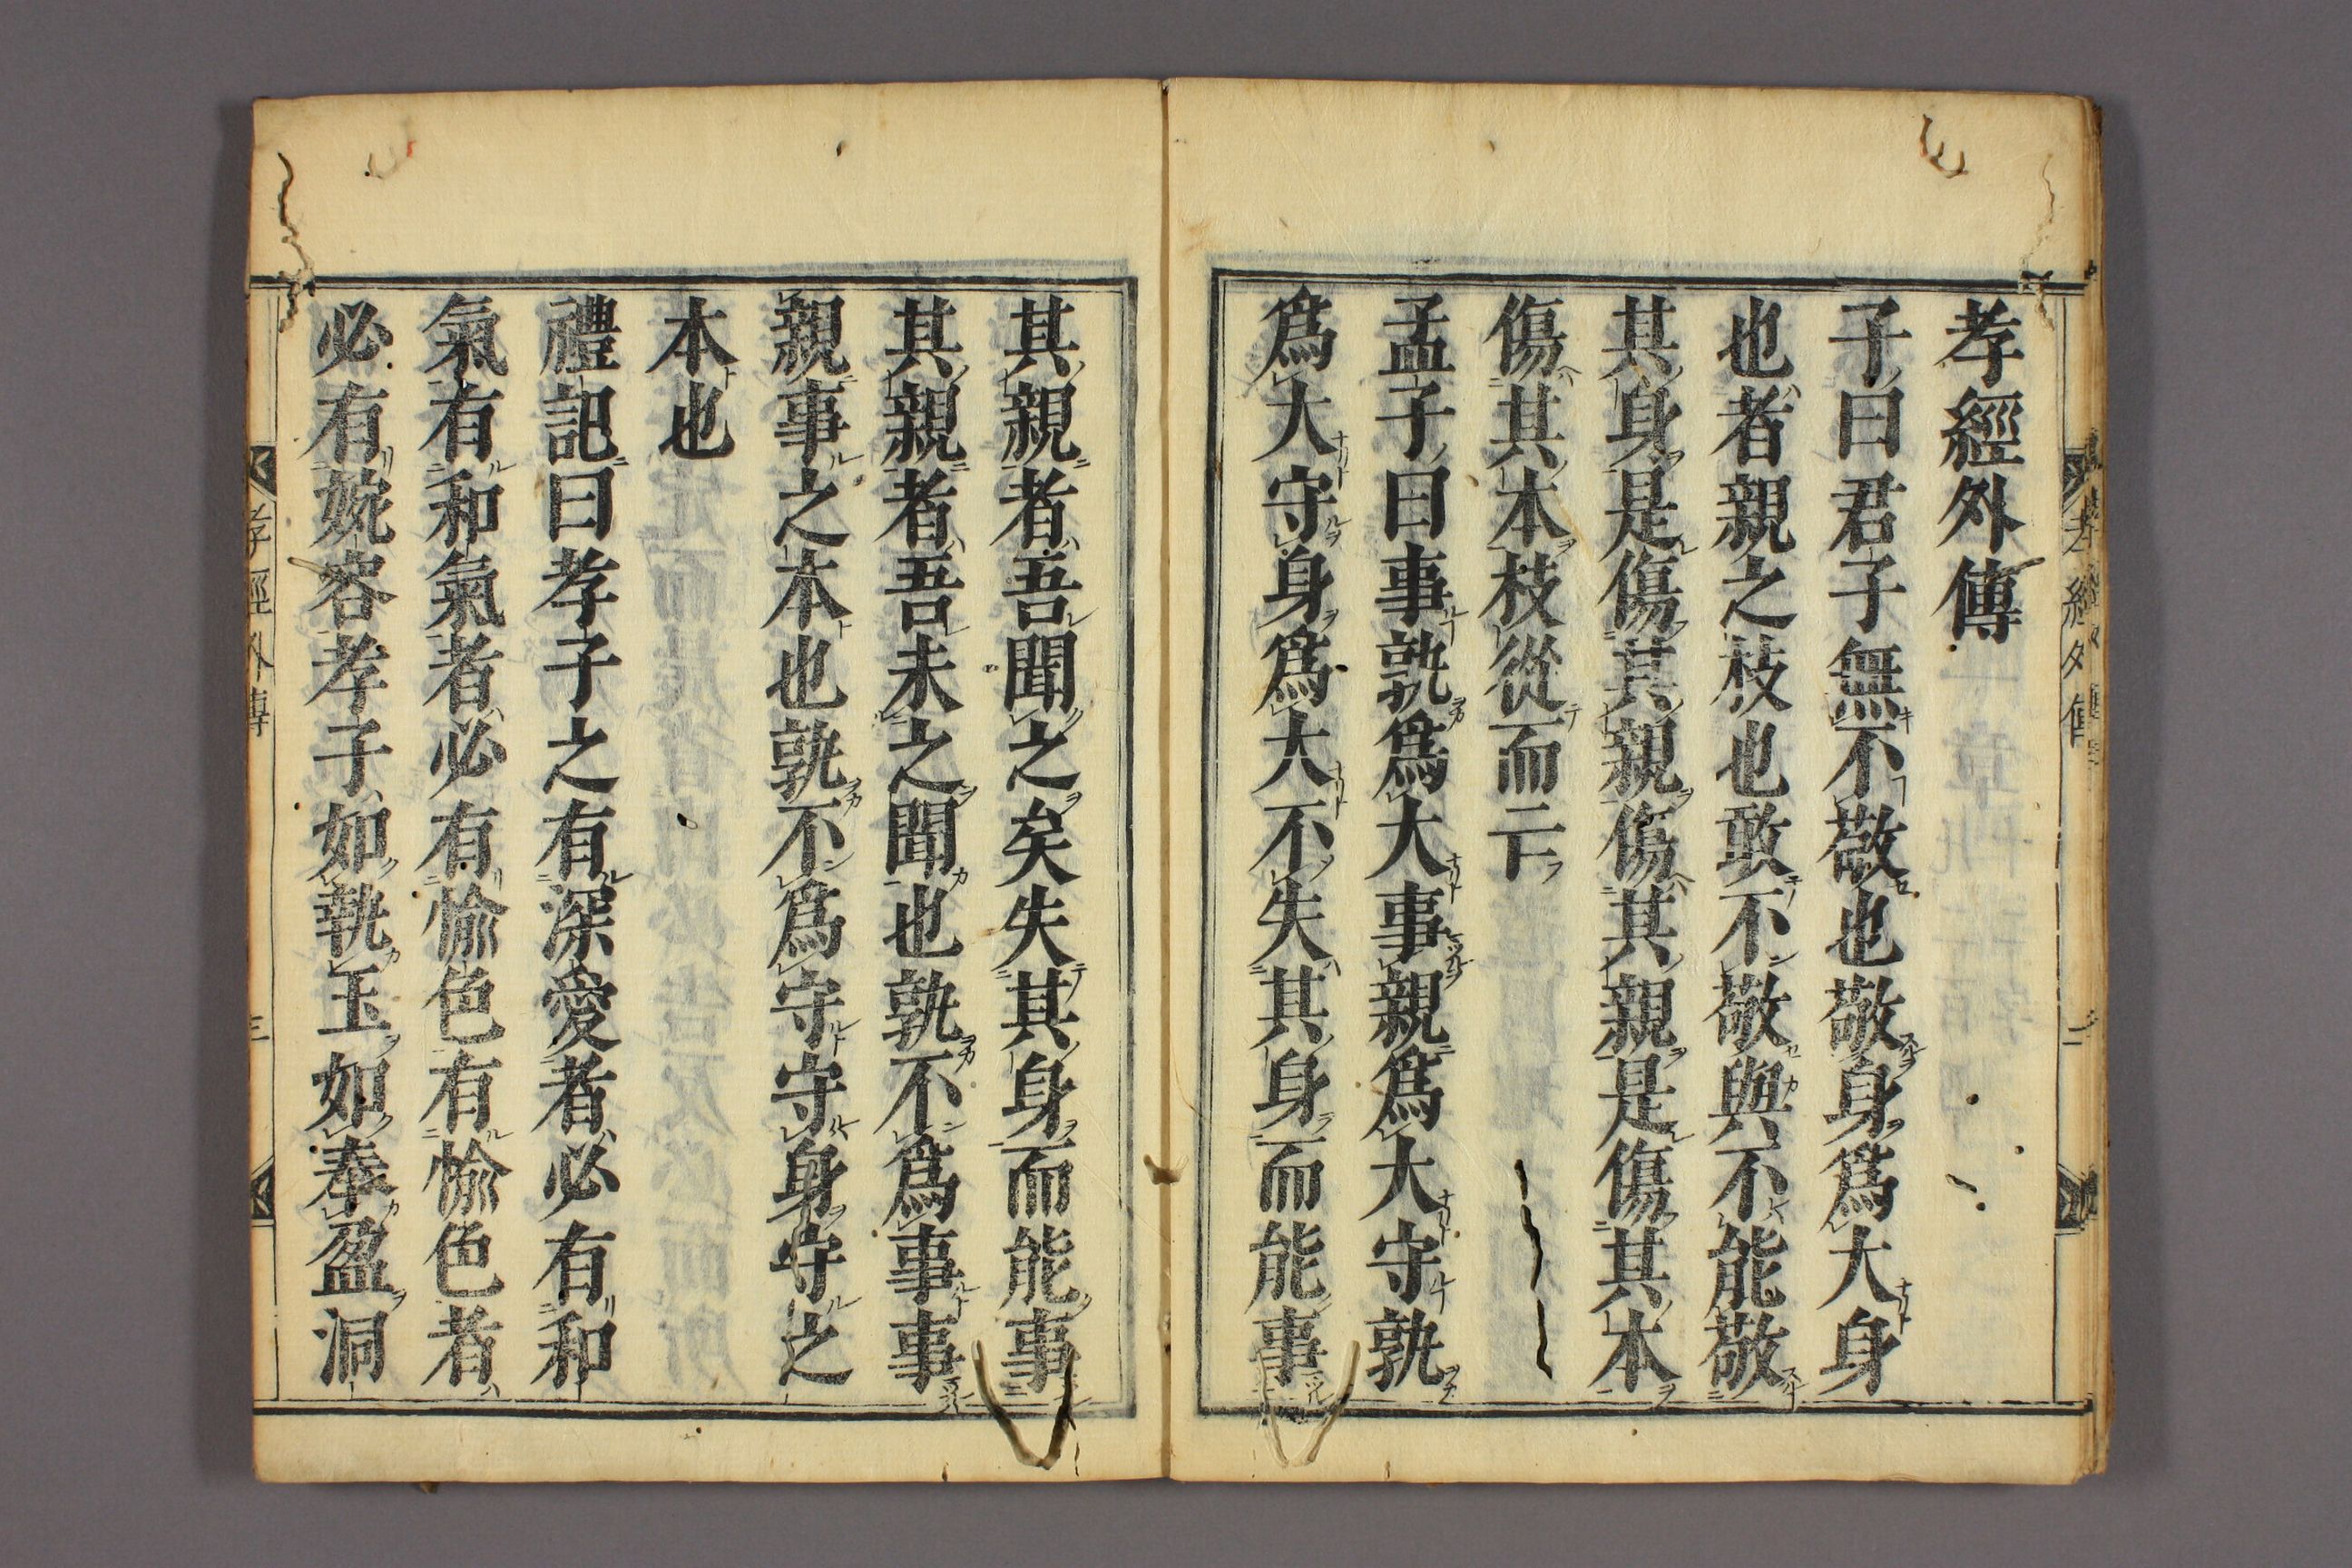 孝經外傳
子曰君子無不敬也敬身爲大身
也者親之枝也敢不敬與不能敬
其身是傷其親傷其親是傷其本
傷其本枝從而亡
孟子曰事孰爲大事親爲大守孰
爲大守身爲大不失其身而能事
其親者吾聞之矣失其身而能事
其親者吾未之聞也孰不爲事事
親事之本也孰不爲守守身守之
本也
禮記曰孝子之有深愛者必有和
氣有和氣者必有愉色有愉色者
必有婉容孝子如執玉如奉盈洞
孝經外傳 三